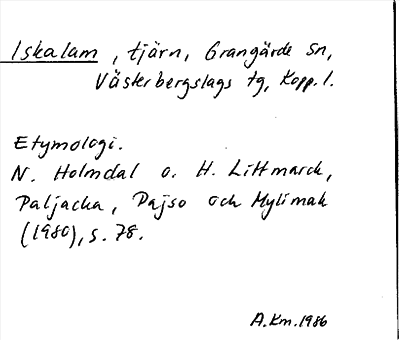 Iskalam, tjärn, Grangärde sn,
Västerbergslags tg, Kopp. l.
Etymologi.
N. Holmdal o. H. Littmarck,
Paljacka, Pajso och Mylimak
(1980), s. 78.
A.Km. 1986